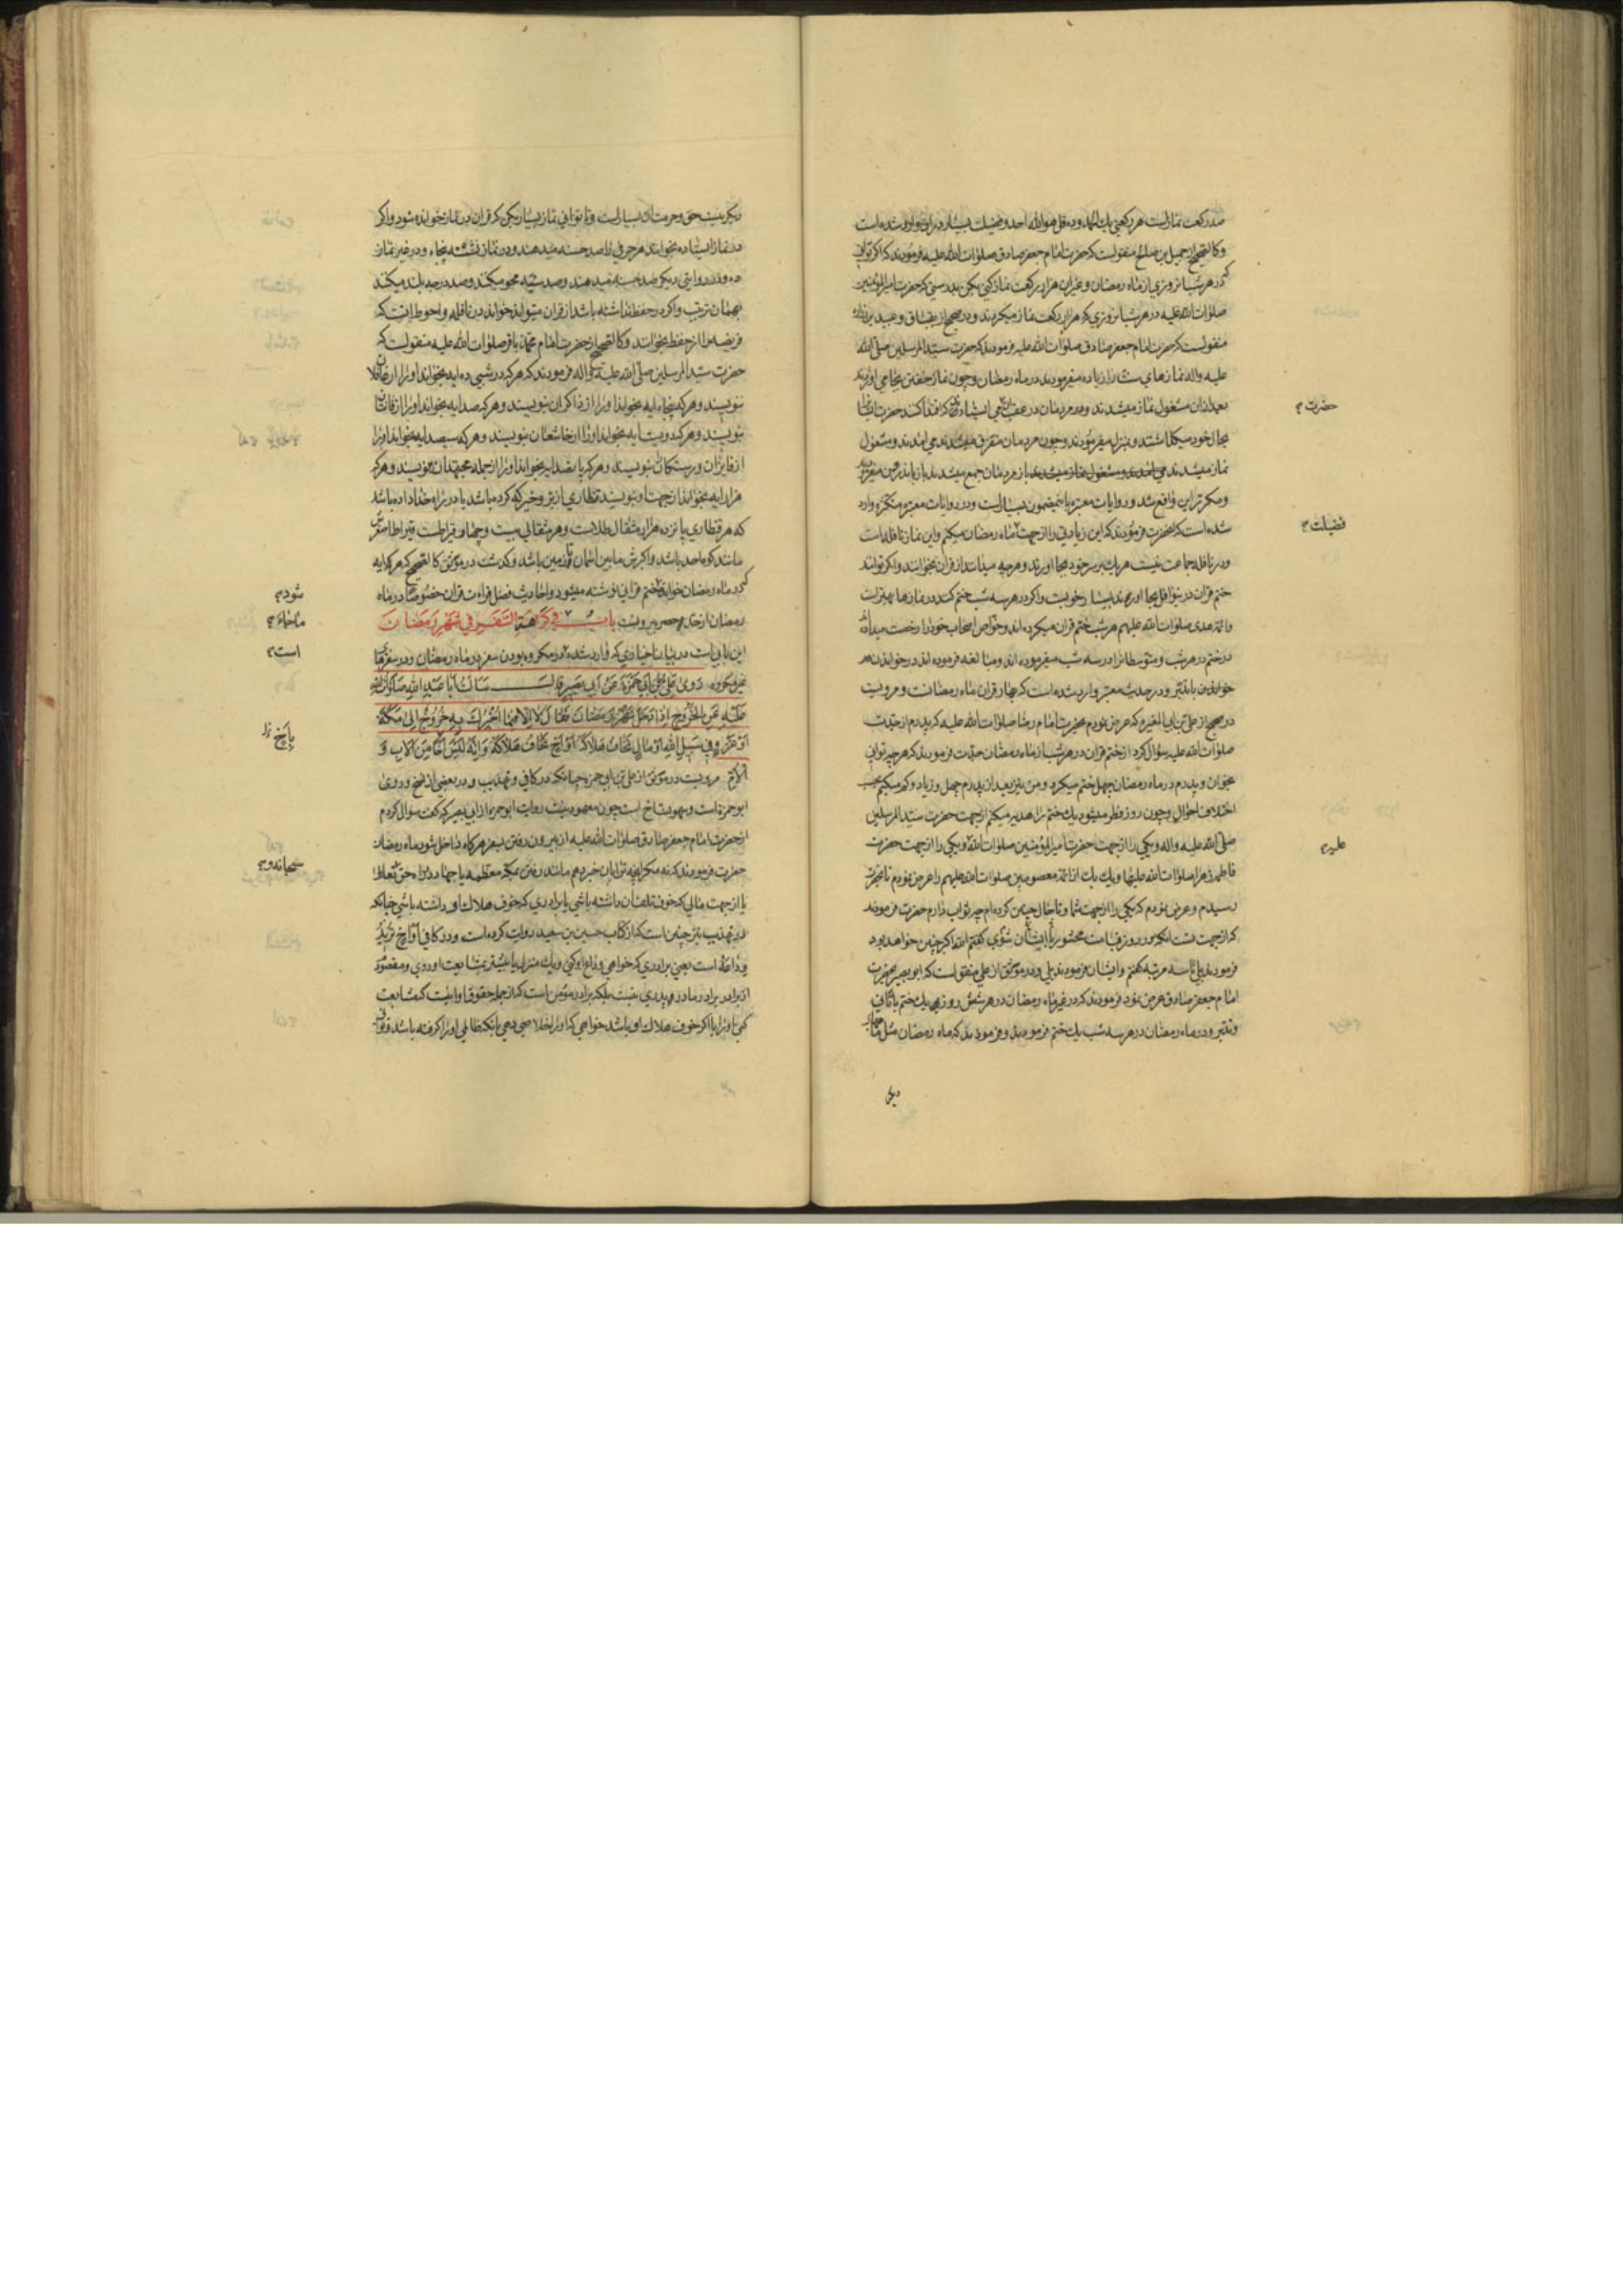 صد رکعت نمازاست هر رکعتی یك الحمد وده قل هو الله احد وفضیلت بسیار در وارد شده است
وکالصحیح از جمیل بن صالح منقولست که حضرت امام جعفر صادق صلوات الله علیه فرمودند که اکر توانی
که در هر شبانروزی از ماه رمضان وغیر ان هزار رکعت نماز کنی بکن بدرستی که حضرت امیر المؤمنین
صلوات الله علیه در هر شبانروزی که هزار رکعت نماز میکردند ودر صحیح از بقباق وعبید بن زراره
منقولست که حضرت امام جعفر صادق صلوات الله علیه فرمودند که حضرت سید المرسلین صلی الله
علیه واله نمازهای را زیاده میفرمودند در ماه رمضان وچون نماز خفتن بجا می اوردند
بعد از ان مشغول نماز میشدند ومردمان در عقب می ایستادند که اقتدا کنند حضرت ایشانرا
بحال خود میکذاشتند وبمنزل میفرمودند وچون مردمان متفرق میشدند می امدند ومشغول
نماز میشدند باز مردمان جمع میشدند باز
ومکرر این واقع شد وروایات معتبره باین مضمون بسیار است ودر روایات معتبره متکثره وارد
شده است که انحضرت فرمودند که این زیادتی را از جهت ماه رمضان میکنم واین نماز نافله است
ودر نافله جماعت نیست هر یك بر سر خود بجا اورند وهر چه میدانند از قران بخوانند واکر توانند
ختم قران در نوافل بجا اورند بسیار خوبست واکر در هر سه شب ختم کنند در نمازها بهتر است
وائمه هدی صلوات الله علیهم هر شب ختم قران میکرده اند وخواص اصحاب خود را رخصت میداده
در ختم در هر شب ومتوسطانرا در سه شب میفرموده اند ومبالغه فرموده اند در خواندن
خواندن باتدبر ودر حدیث معتبر وارد شده است که بهار قران ماه رمضانست ومرویست
در صحیح از علی بن ابی المغیره که عرض نمودم بحضرت امام رضا صلوات الله علیه که پدرم از جدت
صلوات الله علیه سؤال کرد از ختم قران در هر شب از ماه رمضان جدت فرمودند که هر چه توانی
بخوان وپدرم در ماه رمضان چهل ختم میکرد ومن نیز بعد از پدرم چهل وزیاد وکم میکنم بحسب
اختلاف احوال وچون روز فطر میشود یك ختم را هدیه میکنم از جهت حضرت سید المرسلین
صلی الله علیه واله ویکی را از جهت حضرت امیر المؤمنین صلوات الله ویکی را از جهت حضرت
فاطمه زهرا صلوات الله علیها ویك یك از ائمه معصومین صلوات الله علیهم را عرض نمودم تا بحضرت
رسیدم وعرض نمودم که یکی را از جهت شما وتا حال چنین کرده ام چه ثواب دارم حضرت فرمودند
که از جهت تست انکه در روز قیامت محشور با ایشان شوی کفتم الله اکبر چنین خواهد بود
فرمودند بلی تا سه مرتبه کفتم وایشان فرمودند بلی ودر موثق از علی منقولست که ابو بصیر بحضرت
امام جعفر صادق عرض نمود فرمودند که در غیر ماه رمضان در هر شش روز یك ختم باتأنی
وتدبر ودر ماه رمضان در هر سه شب یك ختم فرمودند وفرمودند که ماه رمضان مثل ماههای
دیکر
حضرت
فضیلت
علیه
دیکر نیست حق وحرمت ان بسیار است وتا توانی نماز بسیار بکن که قران در نماز خوانده شود واکر
در نماز ایستاده بخوانند هر حرفی را صد حسنه میدهند ودر نماز نشسته پنجاه ودر غیر نماز
ده ودر روایتی دیکر صد حسنه میدهند وصد سیئه محو میکنند وصد درجه بلند میکنند
بهمان ترتیب واکر در حفظ نداشته باشد از قران میتواند خواند در نافله واحوط انست که
فریضه را از حفظ بخوانند وکالصحیح از حضرت امام محمد باقر صلوات الله علیه منقولست که
حضرت سید المرسلین صلی الله علیه واله فرمودند که هر که در شبی ده ایه بخواند او را از غافلان
ننویسند وهر که پنجاه ایه بخواند او را از ذاکران بنویسند وهر که صد ایه بخواند او را از قانتان
بنویسند وهر که دویست ایه بخواند او را از خاشعان بنویسند وهر که سیصد ایه بخواند او را
از فایزان ورستکاران نویسند وهر که پانصد ایه بخواند او را از جمله مجتهدان نویسند وهر که
هزار ایه بخواند از جهت او بنویسند قنطاری از بر وخیر که کرده باشد یا در راه خدا داده باشد
که هر قنطاری پانزده هزار مثقال طلاست وهر مثقالی بیست وچهار قیراطست قیراط اصغرش
مانند کوه احد باشد واکبرش مابین اسمان وزمین باشد وکذشت در موثق کالصحیح که هر که ایه
که در ماه رمضان خواند ختم قرانی نوشته میشود واحادیث فضل قراءت قران خصوصا در ماه
رمضان از حد وحصر بیرونست باب في كراهة السفر في شهر رمضان
این بابی است در بیان اخباری که وارد شده در مکروه بودن سفر در ماه رمضان ودر سفرها
غیر مکروه روى علي بن أبي حمزة عن أبي بصير قال سألت أبا عبد الله صلوات الله
عليه عن الخروج إذا دخل شهر رمضان فقال لا إلا فيما أخبرك به خروج إلى مكة
أو غزو في سبيل الله أو مال تخاف هلاكه أو أخ تخاف هلاكه وإنه ليس أخا من الأب و
الأم مرویست در موثق از علی بن ابی حمزه چنانکه در کافی وتهذیب ودر بعضی از نسخ وروی
ابو حمزه است وسهو نساخ است چون معهود نیست روایت ابو حمزه از ابی بصیر که کفت سؤال کردم
از حضرت امام جعفر صادق صلوات الله علیه از بیرون رفتن بسفر هر کاه داخل شود ماه رمضان
حضرت فرمودند که نه مکر انچه ترا بان خبر دهم مانند رفتن بمکه معظمه یا جهاد در راه حق تعالی
یا از جهت مالی که خوف تلف ان داشته باشی یا برادری که خوف هلاك او داشته باشی چنانکه
در تهذیب نیز چنین است که از کتاب حسین بن سعید روایت کرده است ودر کافی أو أخ تريد
وداعه است یعنی برادری که خواهی وداع او کنی ویك منزل یا بیشتر بمشایعت او روی ومقصود
از برادر برادر مادر وپدری نیست بلکه برادر مؤمن است که از جمله حقوق او اینست که مشایعت
کنی او را یا اکر خوف هلاك او باشد خواهی که او را خلاصی دهی بانکه ظالمی او را کرفته باشد
شود
است
یا أخ
سبحانه و